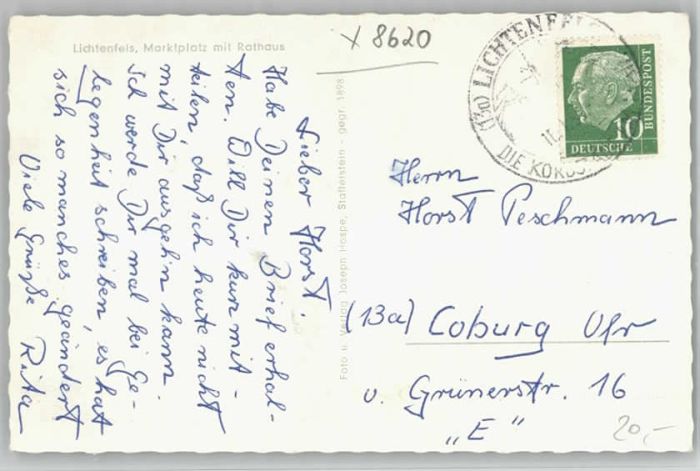 Lichtenfels, Marktplatz mit Rathaus
x 8620
Lieber Horst!
Habe Deinen Brief erhal-
ten. Will Dir kurz mit-
teilen, daß ich heute nicht
mit Dir ausgehn kann.
Ich werde Dir mal bei Ge-
legenheit schreiben, es hat
sich so manches geändert
Viele Grüße Rita
Foto u. Verlag Joseph Hospe, Staffelstein - gegr. 1898
(13a) LICHTENFELS
DIE KORBST
10
DEUTSCHE
BUNDESPOST
Herrn
Horst Peschmann
(13a) Coburg Ofr
v. Grünerstr. 16
„E"
20,-